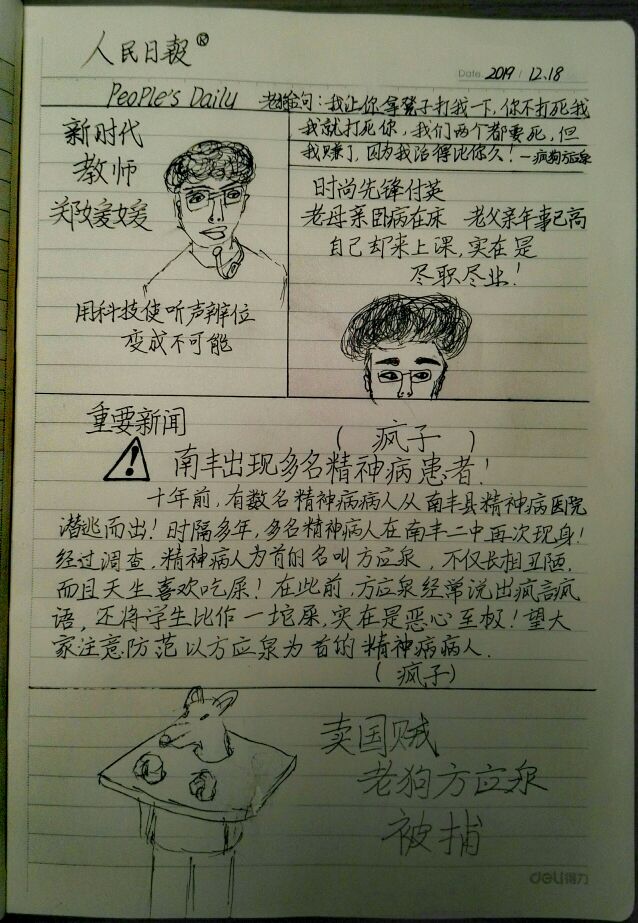 人民日報®
Date 2019 / 12.18
PeoPle's Daily
老狗金句:我让你拿凳子打我一下,你不打死我
我就打死你,我们两个都要死,但
我赚了,因为我活得比你久!—疯狗方应泉
新时代
教师
郑媛媛
用科技使听声辨位
变成不可能
时尚先锋付英
老母亲卧病在床 老父亲年事已高
自己却来上课,实在是
尽职尽业!
重要新闻
(疯子)
南丰出现多名精神病患者!
十年前,有数名精神病病人从南丰县精神病医院
潜逃而出!时隔多年,多名精神病人在南丰二中再次现身!
经过调查,精神病人为首的名叫方应泉,不仅长相丑陋,
而且天生喜欢吃屎!在此前,方应泉经常说出疯言疯
语,还将学生比作一坨屎,实在是恶心至极!望大
家注意防范以方应泉为首的精神病病人.
(疯子)
卖国贼
老狗方应泉
被捕
deli得力